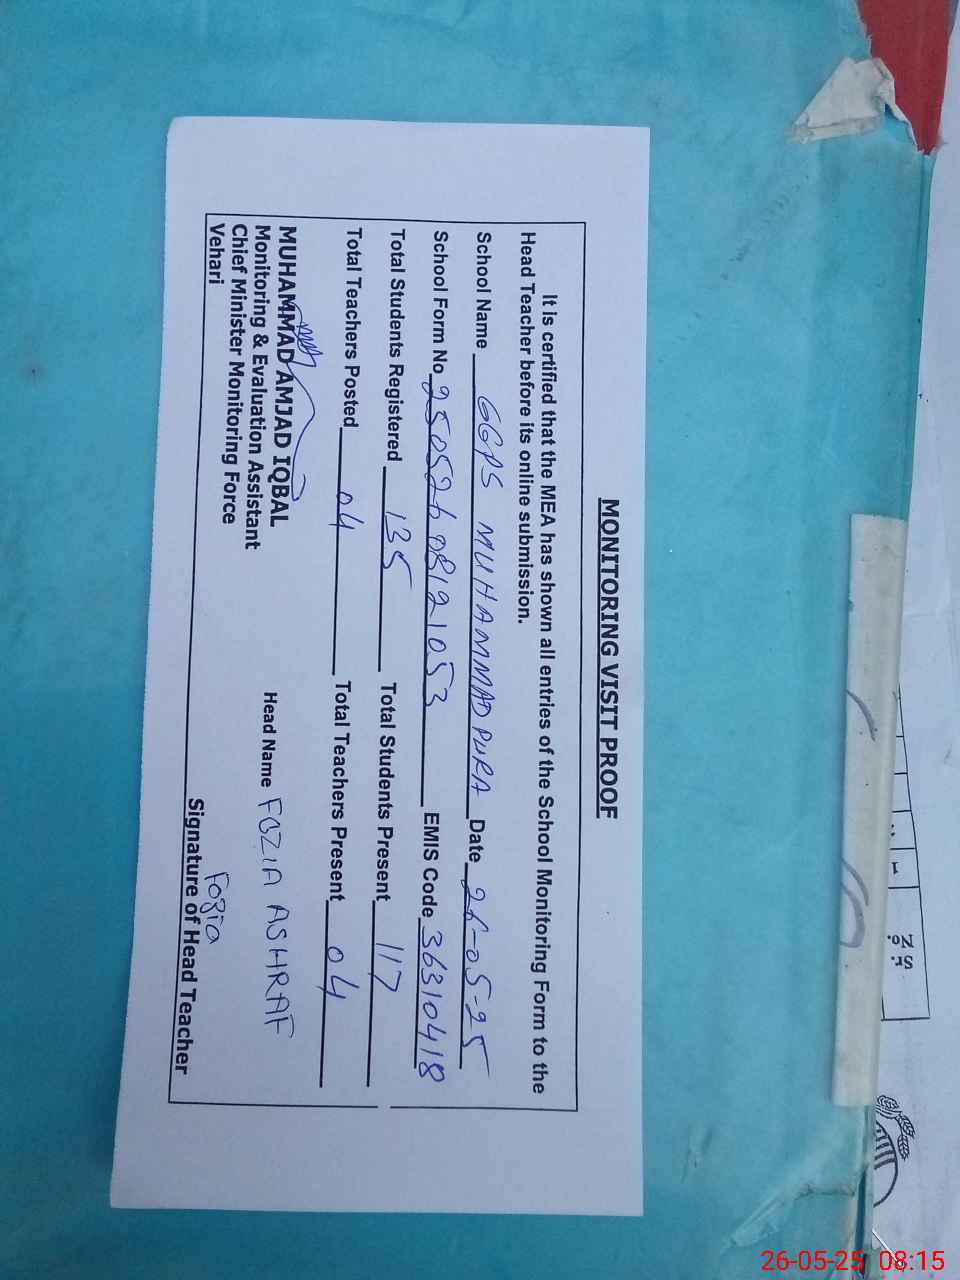 MONITORING VISIT PROOF
It is certified that the MEA has shown all entries of the School Monitoring Form to the
Head Teacher before its online submission.
School Name GGPS MUHAMMAD PURA Date 26-05-25
School Form No 250526 0812 1053 EMIS Code 36310418
Total Students Registered 135 Total Students Present 117
Total Teachers Posted 04 Total Teachers Present 04
MUHAMMAD AMJAD IQBAL
Monitoring & Evaluation Assistant
Chief Minister Monitoring Force
Vehari
Head Name FOZIA ASHRAF
Fozia
Signature of Head Teacher
26-05-25 08:15